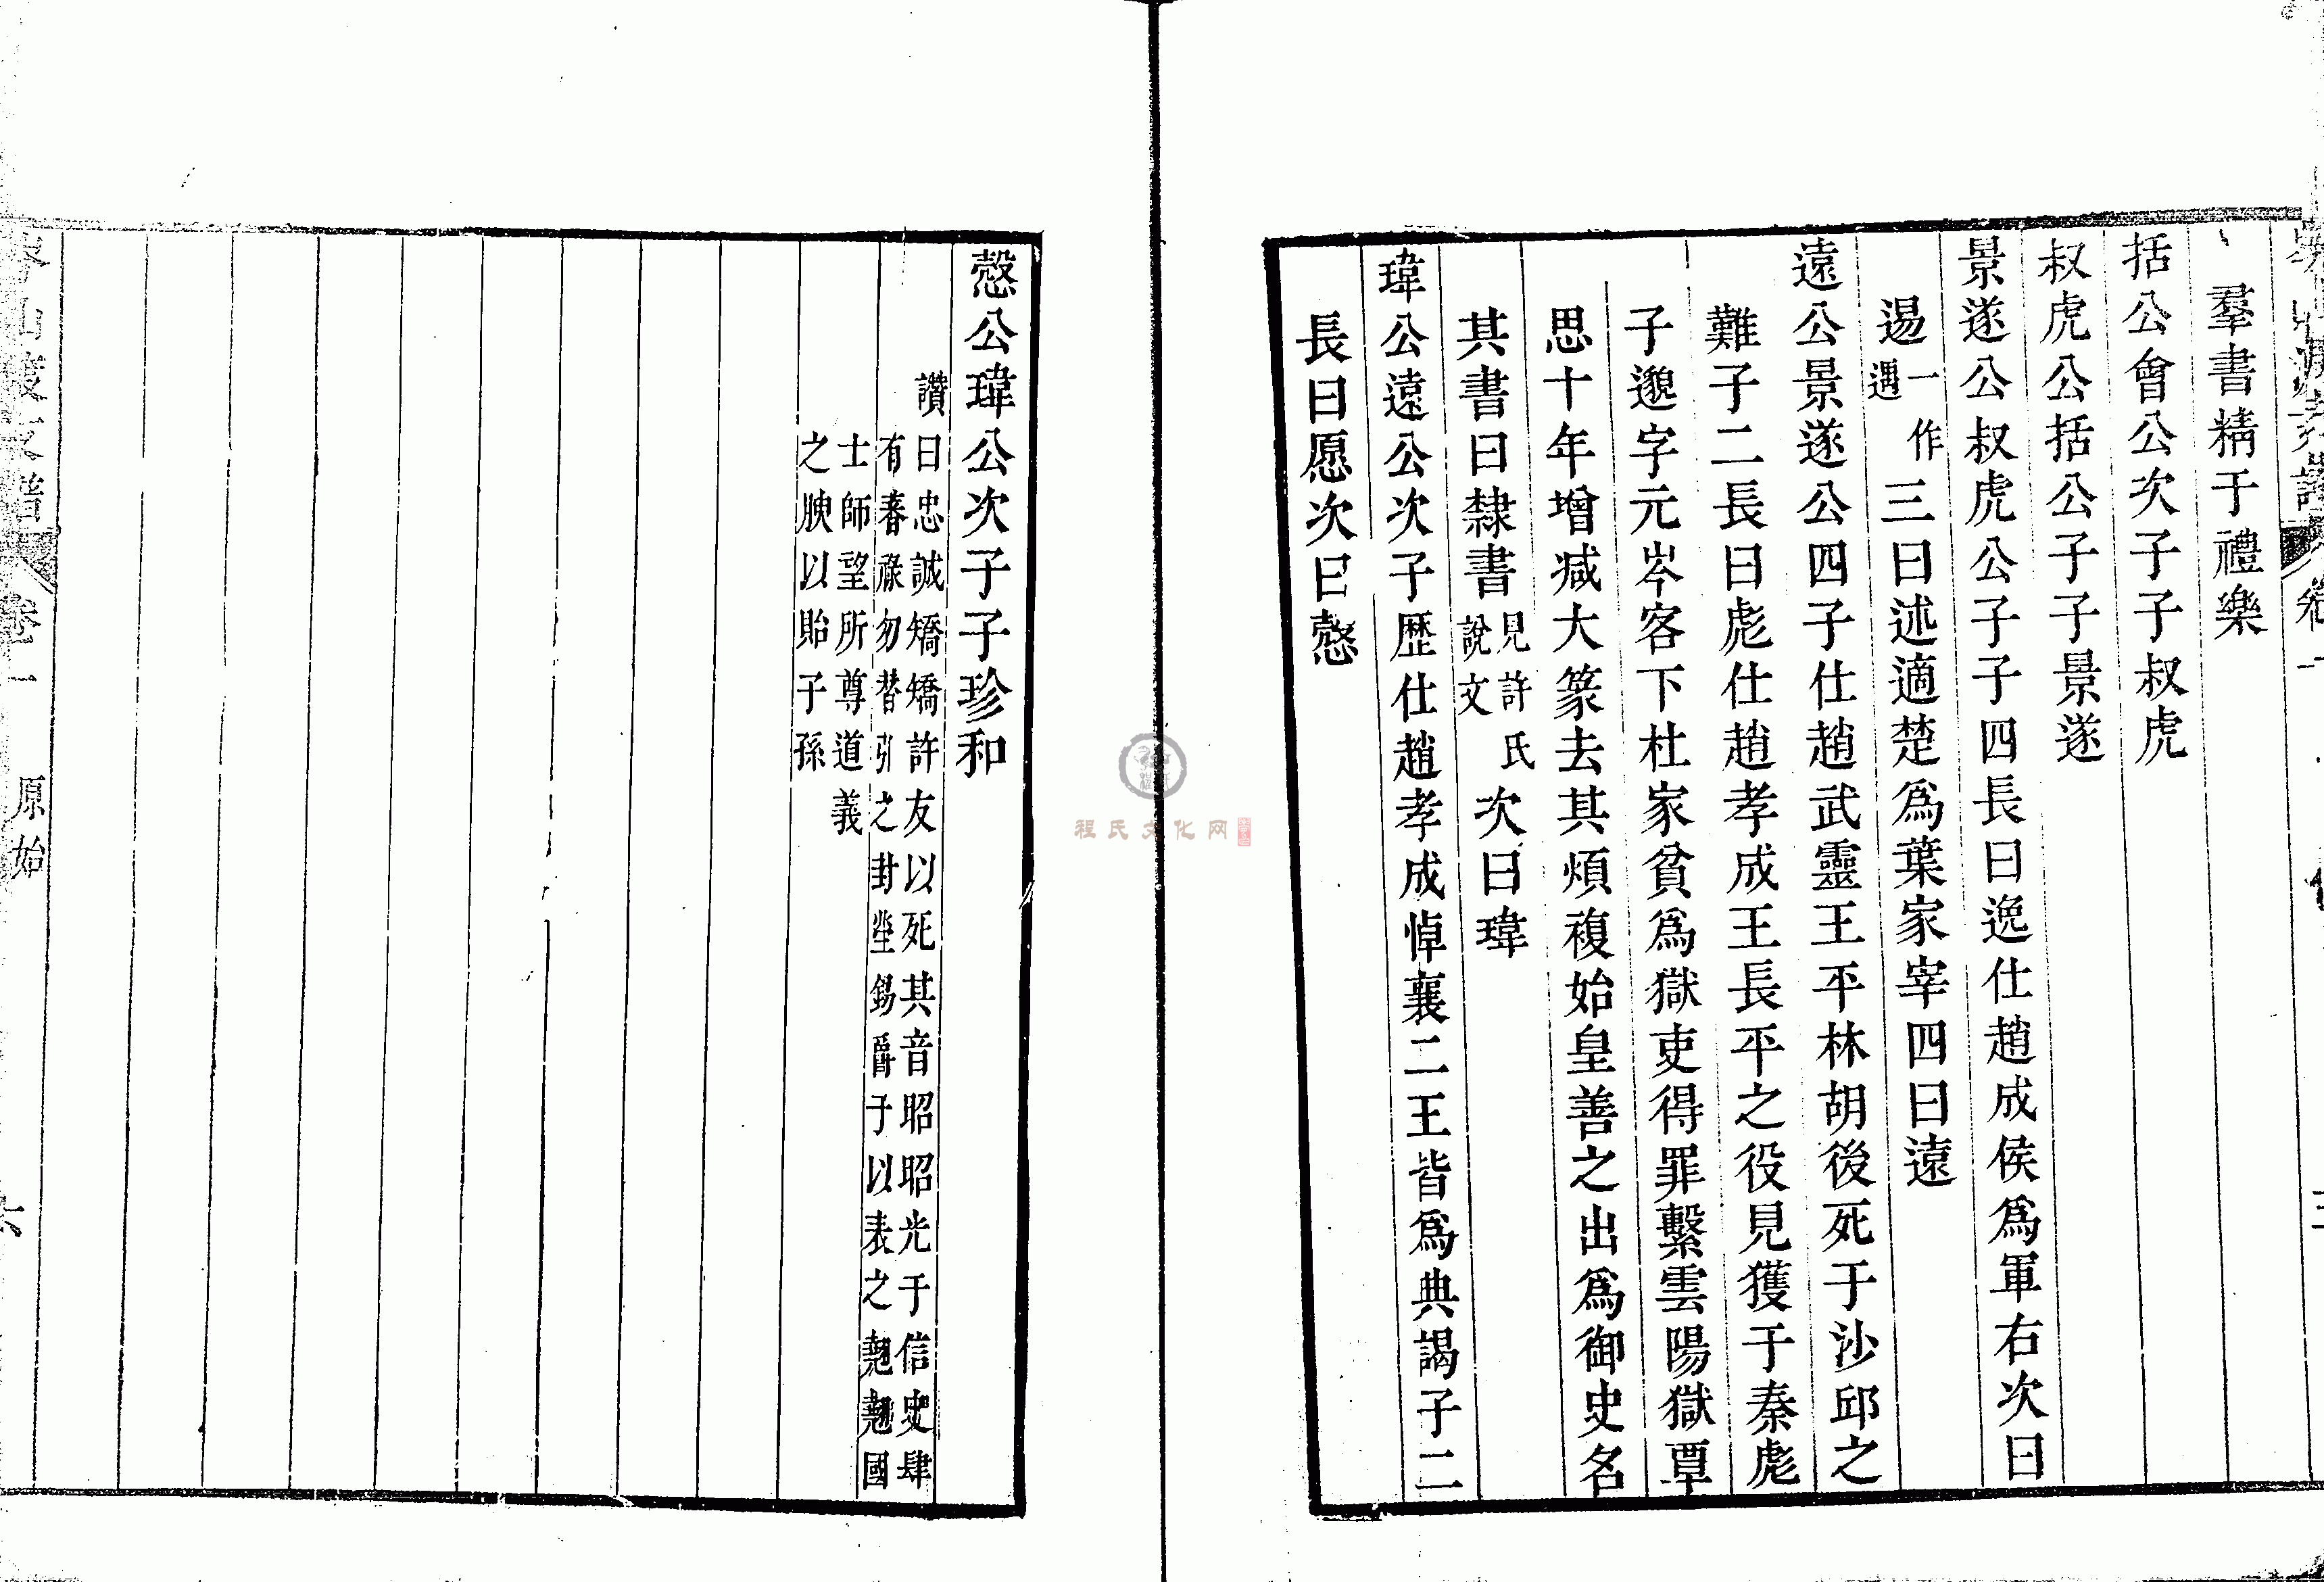 羣書精于禮樂
括公會公次子子叔虎
叔虎公括公子子景遂
景遂公叔虎公子子四長曰逸仕趙成侯爲軍右次曰
逷一作遇三曰述適楚爲葉家宰四曰遠
遠公景遂公四子仕趙武靈王平林胡後死于沙邱之
難子二長曰彪仕趙孝成王長平之役見獲于秦彪
子邈字元岑客下杜家貧爲獄吏得罪繫雲陽獄覃
思十年增減大篆去其煩複始皇善之出爲御史名
其書曰隸書見許氏說文次曰瑋
瑋公遠公次子歷仕趙孝成悼襄二王皆爲典謁子二
長曰愿次曰慤
慤公瑋公次子子珍和
讚曰忠誠矯矯許友以死其音昭昭光于信史肆
有春祿勿替引之封塋錫爵于以表之翹翹國
士師望所尊道義
之腴以貽子孫
卷一
原始
六
程氏文化网